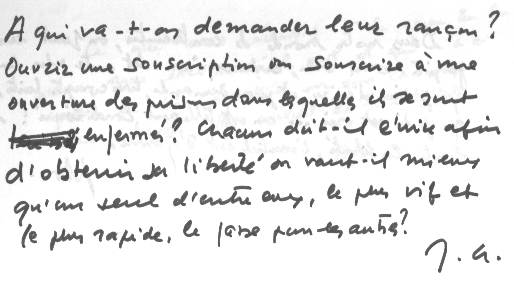 A qui va-t-on demander leur rançon?
Ouvrir une souscription ou souscrire à une
ouverture des prisons dans lesquelles ils se sont
enfermés? Chacun doit-il écrire afin
d'obtenir sa liberté ou vaut-il mieux
qu'un seul d'entre eux, le plus vif et
le plus rapide, le fasse pour les autres?
J. G.